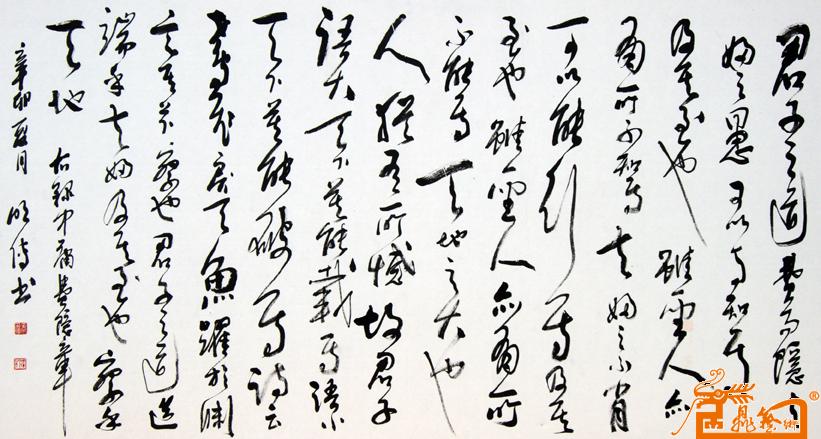 君子之道費而隱夫
婦之愚可以与知焉
及其至也雖聖人亦
有所不知焉夫婦之不肖
可以能行焉及其
至也雖聖人亦有所
不能焉天地之大也
人猶有所憾故君子
語大天下莫能載焉語小
天下莫能破焉詩云
鳶飛戾天魚躍於淵
言其上下察也君子之道造
端乎夫婦及其至也察乎
天地
右錄中庸費隱章
辛卯夏月